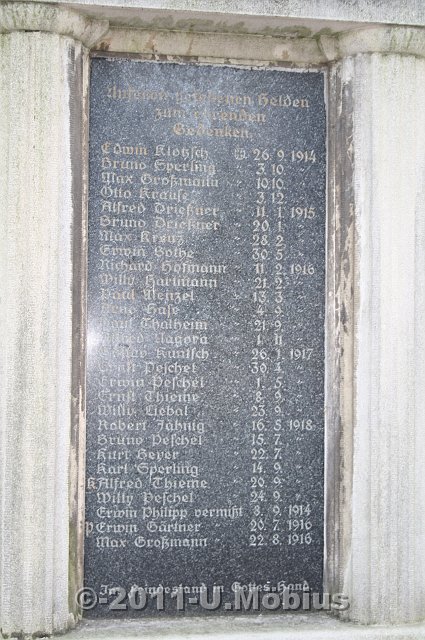 Unseren gefallenen Helden
zum ehrenden
Gedenken.
Edwin Klotzsch 26. 9. 1914
Bruno Sperling " 3. 10. "
Max Großmann " 10. 10. "
Otto Krause " 3. 12. "
Alfred Drießner " 11. 1. 1915
Bruno Drießner " 20. 1. "
Max Kreuz " 28. 2. "
Erwin Gothe " 30. 5. "
Richard Hofmann " 11. 2. 1916
Willy Hartmann " 21. 2. "
Paul Menzel " 13. 3. "
Arno Hase " 4. 9. "
Paul Thalheim " 21. 9. "
Alfred Nagora " 1. 11. "
Kuntsch " 26. 1. 1917
Ernst Peschel " 30. 4. "
Erwin Peschel " 1. 5. "
Ernst Thieme " 8. 9. "
Willy Liebal " 23. 9. "
Robert Jähnig " 16. 5. 1918
Bruno Peschel " 15. 7. "
Kurt Beyer " 22. 7. "
Karl Sperling " 14. 9. "
K Alfred Thieme " 20. 9. "
Willy Peschel " 24. 9. "
Erwin Philipp vermißt 8. 9. 1914
P Erwin Gärtner " 20. 7. 1916
Max Großmann " 22. 8. 1916
In Feindesland in Gottes Hand.
©-2011-U.Möbius